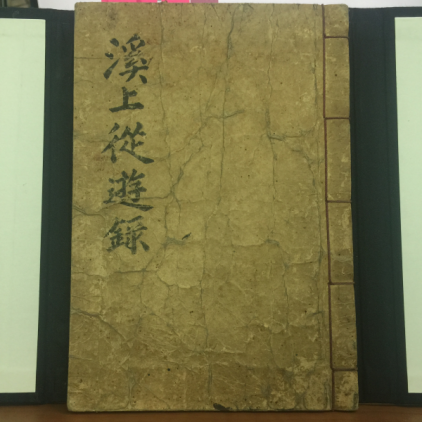 溪上從遊錄